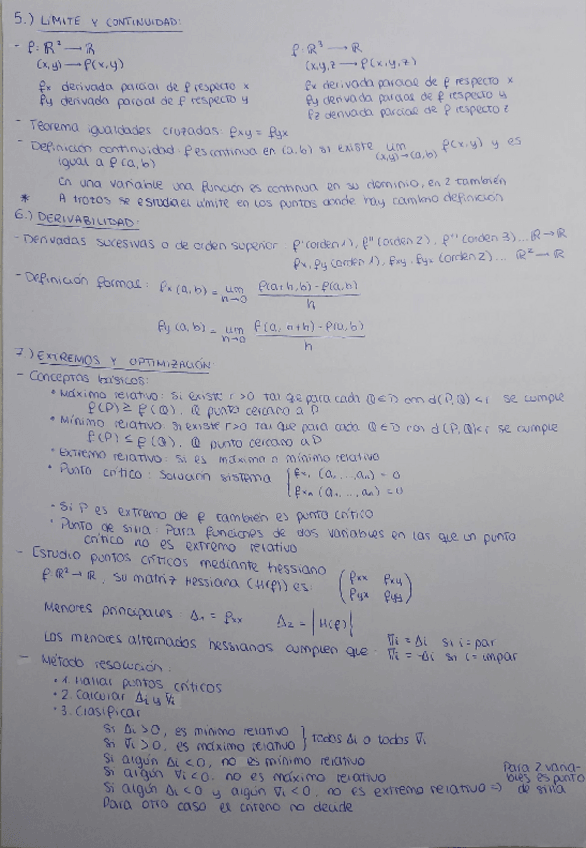 5.) LÍMITE Y CONTINUIDAD:
- f: ℝ² → ℝ
(x,y) → f(x,y)
fx derivada parcial de f respecto x
fy derivada parcial de f respecto y
f: ℝ³ → ℝ
(x,y,z → f(x,y,z)
fx derivada parcial de f respecto x
fy derivada parcial de f respecto y
fz derivada parcial de f respecto z
- Teorema igualdades cruzadas: fxy = fyx
- Definición continuidad: f es continua en (a,b) si existe lim (x,y)→(a,b) f(x,y) y es
igual a f(a,b)
En una variable una función es continua en su dominio, en 2 también
* A trozos se estudia el límite en los puntos donde hay cambio definición
6.) DERIVABILIDAD:
- Derivadas sucesivas o de orden superior f'(orden 1), f''(orden 2), f'''(orden 3)... ℝ→ℝ
fx, fy (orden 1), fxy, fyx (orden 2)... ℝ²→ℝ
- Definición formal: fx(a,b) = lim h→0 f(a+h,b) - f(a,b) / h
fy(a,b) = lim h→0 f(a, b+h) - f(a,b) / h
7.) EXTREMOS Y OPTIMIZACIÓN:
- Conceptos básicos:
• Máximo relativo: Si existe r>0 tal que para cada Q∈D con d(P,Q)<r se cumple
f(P) ≥ f(Q). Q punto cercano a P
• Mínimo relativo: Si existe r>0 tal que para cada Q∈D con d(P,Q)<r se cumple
f(P) ≤ f(Q). Q punto cercano a P
• Extremo relativo: si es máximo o mínimo relativo
• Punto crítico: Solución sistema { fx₁(a₁,...,an) = 0
fxn(a₁,...,an) = 0
• Si P es extremo de f también es punto crítico
• Punto de silla: Para funciones de dos variables en las que un punto
crítico no es extremo relativo
- Estudio puntos críticos mediante hessiano
f: ℝ² → ℝ, su matriz Hessiana (H(f)) es: ( fxx fxy
fyx fyy )
Menores principales: Δ₁ = fxx Δ₂ = |H(f)|
Los menores alternados hessianos cumplen que: ∇i = Δi si i = par
∇i = -Δi si i = impar
- Método resolución:
• 1. Hallar puntos críticos
• 2. Calcular Δi y ∇i
• 3. Clasificar
Si Δi > 0, es mínimo relativo
Si ∇i > 0, es máximo relativo } todos Δi o todos ∇i
Si algún Δi < 0, no es mínimo relativo
Si algún ∇i < 0, no es máximo relativo
Si algún Δi < 0 y algún ∇i < 0, no es extremo relativo ⇒ Para 2 varia-
bles es punto
de silla
Para otro caso el criterio no decide